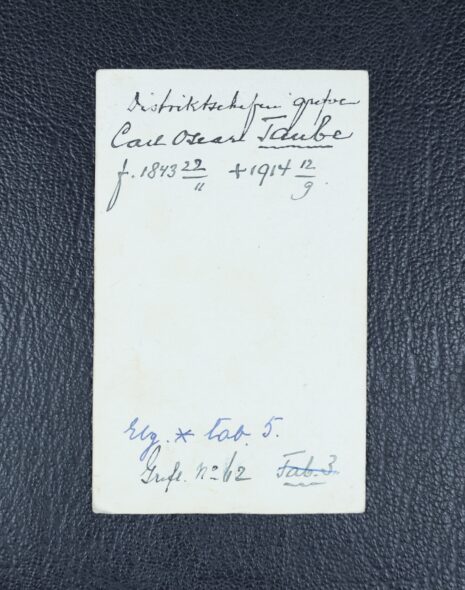 Distriktschefen grefve
Carl Oscar Taube
f. 1843 22/11 + 1914 12/9.
Elg. * tab. 5.
Grefl. No 62 Tab. 3